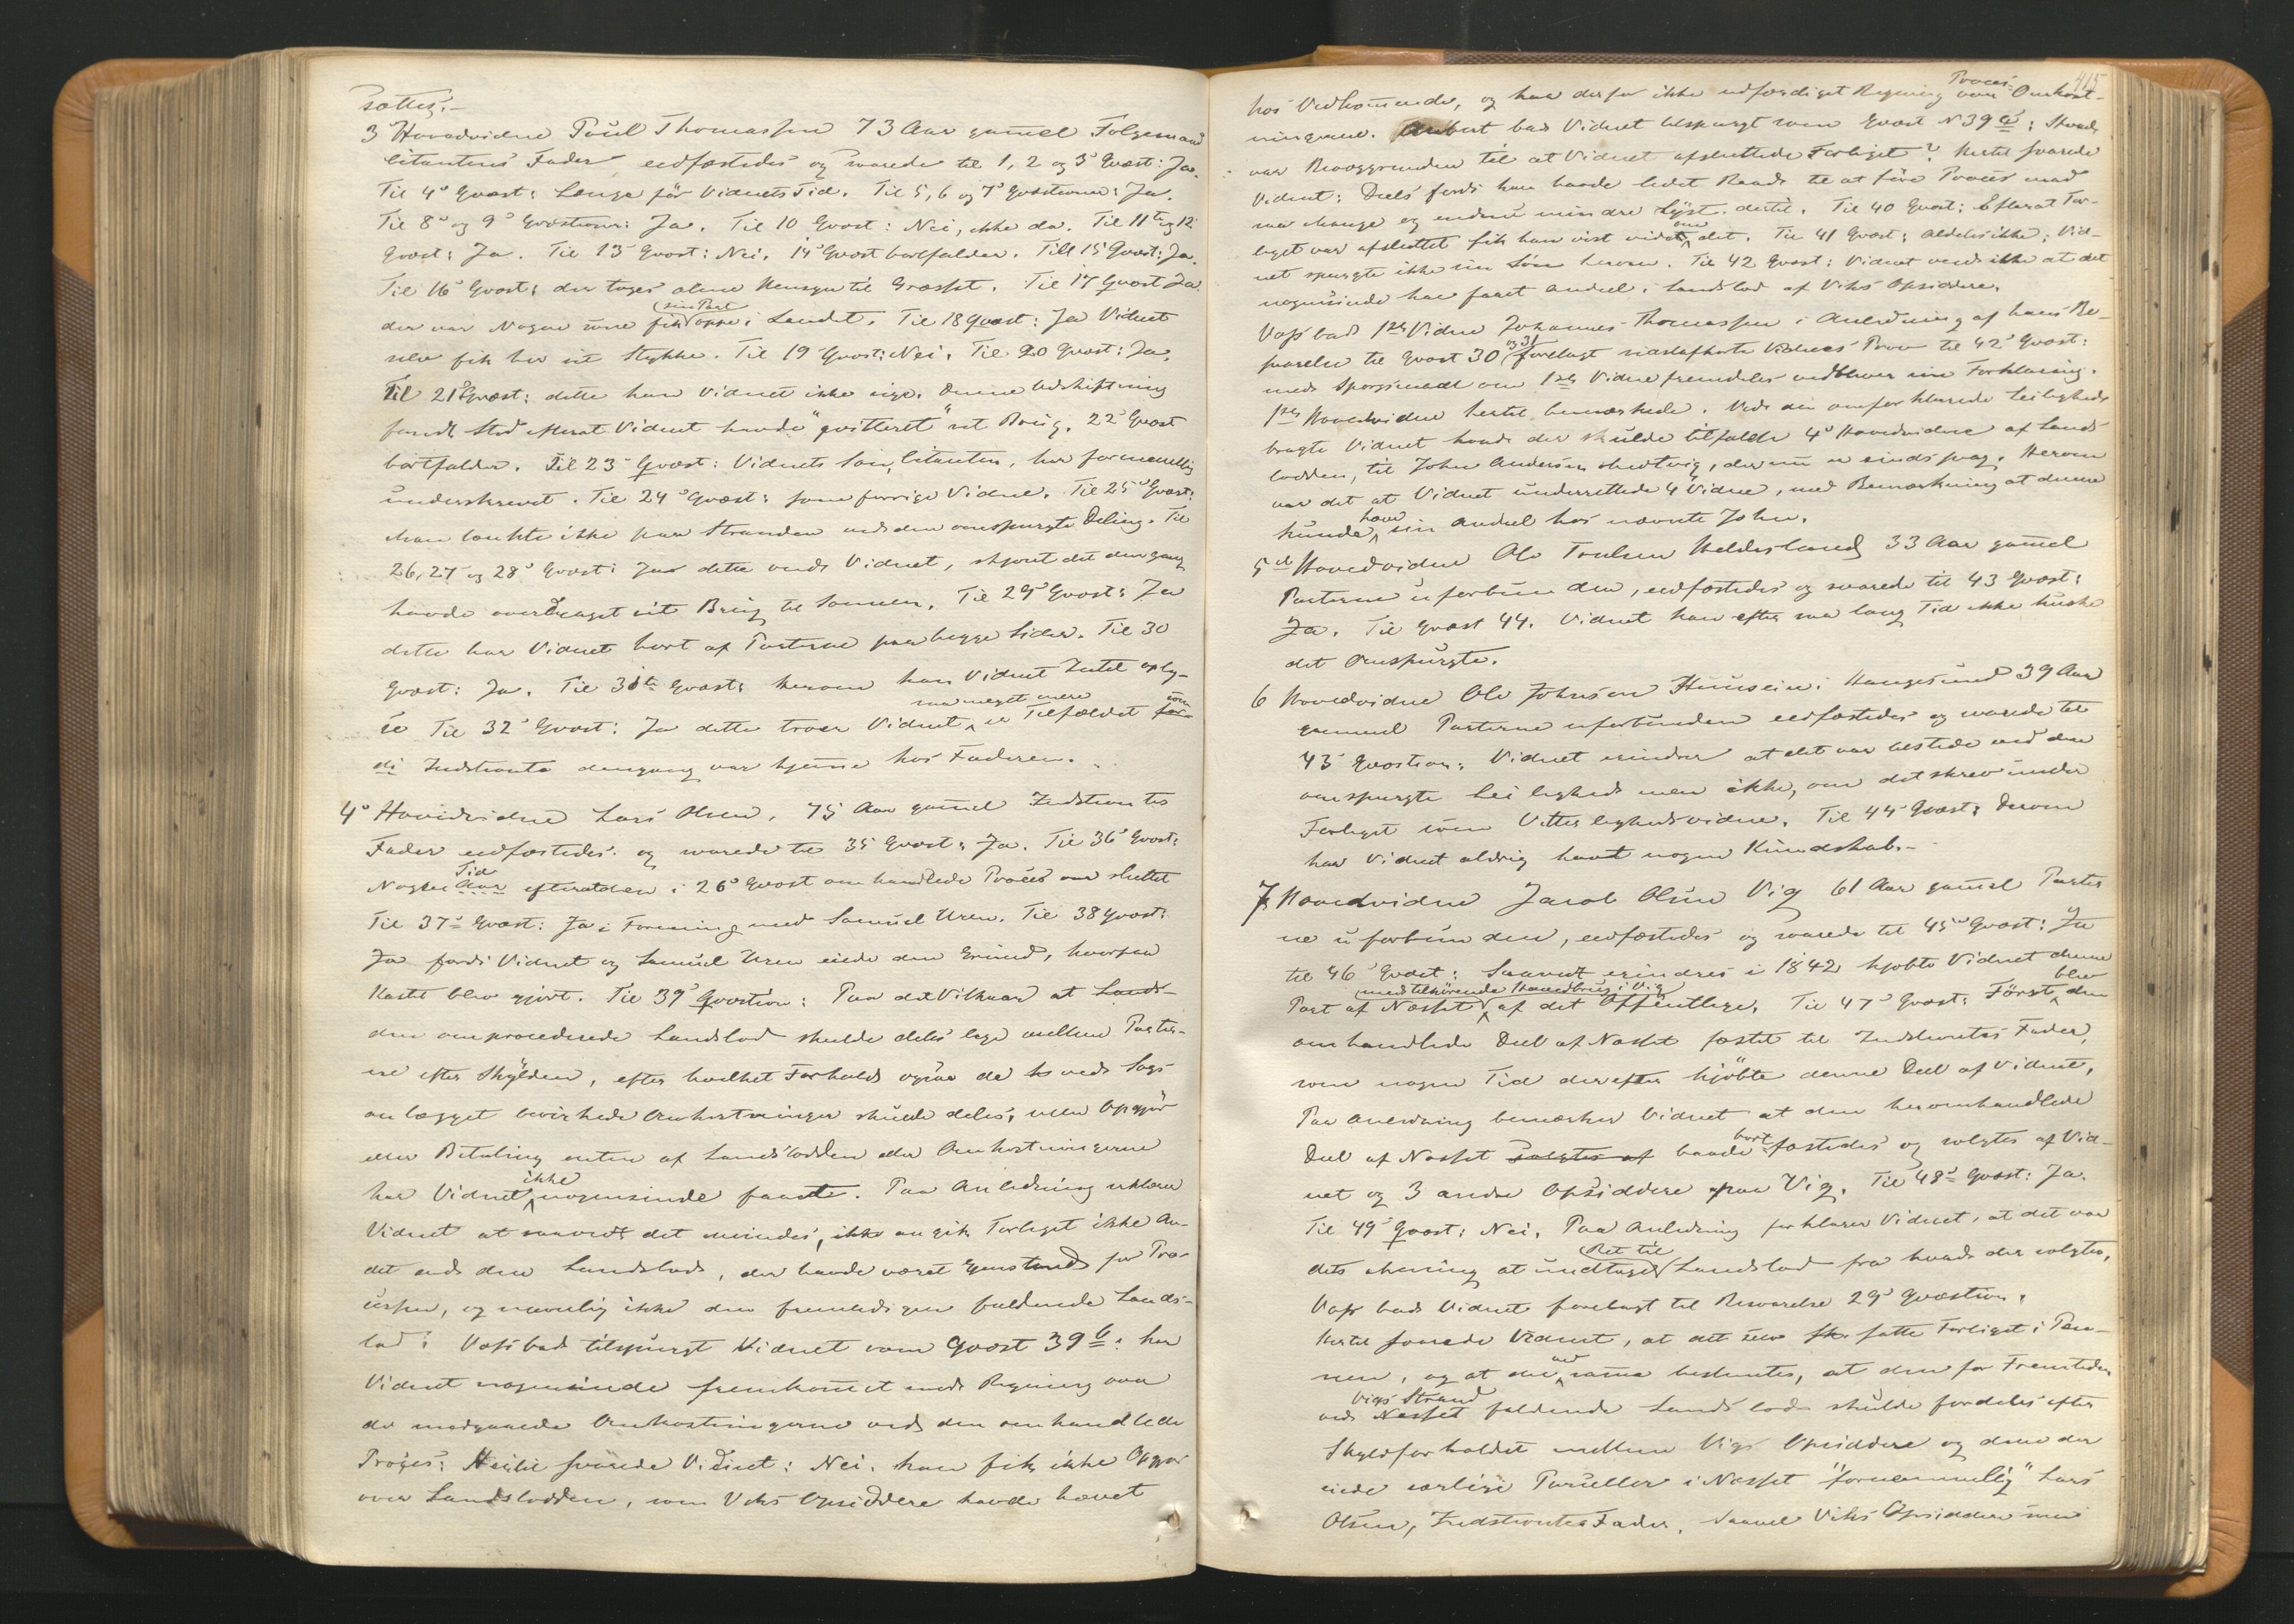 sættes.-
3' Hovedvidne Poul Thomassen 73 Aar gamel Følgemand
Citantens Fader, eedfæstedes og svarede til 1, 2 og 3' Qvæst: Ja.
Til 4' Qvæst: Længe før Vidnets Tid. Til 5, 6 og 7' Qvæstioner: Ja.
Til 8' og 9' Qvæstioner: Ja. Til 10 Qvæst: Nei, ikke da. Til 11te og 12
Qvæst: Ja. Til 13' Qvæst: Nei. 14' Qvæst bortfalder. Till 15' Qvæst: Ja.
Til 16' Qvæst: der toges alene Hensyn til Græsset. Til 17 Qvæst Ja
der var Nogen som fik sin Part oppe i Landet. Til 18 Qvæst: Ja Vidnet
selv fik her sit Stykke. Til 19' Qvæst: Nei. Til 20 Qvæst: Ja.
Til 21' Qvæst: dette kan Vidnet ikke sige. Denne Udskiftning
fandt Sted efterat Vidnet havde "qvitteret" sit Brug. 22' Qvæst
bortfalder. Til 23' Qvæst: Vidnets Søn, Citanten, har formentlig
underskrevet. Til 24' Qvæst: som forrige Vidne. Til 25' Qvæst:
Man tænkte ikke paa Stranden ved den omspurgte Deling. Til
26, 27 og 28' Qvæst: Ja dette veed Vidnet, skjønt det dengang
havde overdraget sit Brug til Sønnen. Til 29' Qvæst: Ja
dette har Vidnet hørt af Parterne paa begge Sider. Til 30
Qvæst: Ja. Til 31te Qvæst: herom kan Vidnet Intet oply-
se Til 32' Qvæst: Ja dette troer Vidnet saa meget mere er Tilfældet som for-
di Indstevnte dengang var hjemme hos Faderen.
4' Hovedvidne Lars Olsen, 75 Aar gamel Indstevntes
Fader eedfæstedes og svarede til 35 Qvæst: Ja. Til 36' Qvæst:
Nogen Tid Aar efteratden i 26' Qvæst omhandlede Proces var sluttet
Til 37' Qvæst: Ja i Forening med Samuel Uren. Til 38 Qvæst:
Ja fordi Vidnet og Samuel Uren eiede den Grund, hvorpaa
Kastet blev gjort. Til 39' Qvæstion: Paa det Vilkaar at Lands-
den omprocederede Landslod skulde deles lige mellem Parter-
ne efter Skylden, efter hvilket Forhold ogsaa de hs ved Sags
anlægget bevirkede Omkostninger skulde deles; men Opgjør
eller Betaling enten af Landslodden eller Omkostningerne
har Vidnet ikke nogensinde faaet. Paa Anledning erklærer
Vidnet at saavidt det mindes, ikke angik Forliget ikke An-
det end den Landslod, der havde været Gjenstand for Pro-
cessen, og navnlig ikke den fremtidigen faldende Lands-
lod; Voss bad tilspurgt Vidnet som Qvæst 39 b: har
Vidnet nogensinde fremkommet med Regning over
de medgaaede Omkostningerne ved den omhandlede
Proces: Hertil svarede Vidnet: Nei, han fik ikke Opgjør
over Landslodden, som Viks Opsiddere havde hævet
415
hos Vedkommende, og har derfor ikke udfærdiget Regning over Proces-Omkost-
ningerne. bad Vidnet tilspurgt som Qvæst N 39 c: Hvad
var Bevæggrunden til at Vidnet afsluttede Forliget? Hertil svarede
Vidnet: Deels fordi han havde lidet Raad til at føre Proces mod
saa Mange og endnu mindre Lyst dertil. Til 40 Qvæst: Efterat For-
liget var afsluttet fik han vist vide om det. Til 41 Qvæst: Aldeles ikke; Vid-
net spurgte ikke sin Søn herom. Til 42 Qvæst: Vidnet veed ikke at det
nogensinde har faaet Andeel i Landslod af Viks Opsiddere.
Voss bad 1ste Vidne Johannes Thomassen i Anledning af hans Be-
svarelse til Qvæst 30 og 31 forelagt Vidnes Prov til 42' Qvæst:
med Spørgsmaal om 1ste Vidne fremdeles vedbliver sin Forklaring.
1ste Hovedvidne hertil bemærkede. Ved den omforklarede Leilighed
bragte Vidnet hvad der skulde tilfalde 4' Hovedvidne af Lands
lodden, til John Andersen, der nu er sindssvag. Herom
var det at Vidnet underrettede 4' Vidne, med Bemærkning at denne
kunde have sin Andeel hos nævnte John.
5te Hovedvidne Ole Halderland 33 Aar gamel
Parterne uforbunden, eedfæstedes og svarede til 43 Qvæst:
Ja. Til Qvæst 44. Vidnet kan efter saa lang Tid ikke huske
det Omspurgte.
6 Hovedvidne Ole Johnsen i Haugesund 39 Aar
gammel Parterne uforbunden eedfæstedes og svarede til
43' Qvæstion: Vidnet erindrer at det var tilstede ved den
omspurgte Leilighed men ikke, om det skrev under
Forliget som Vitterlighedsvidne. Til 44' Qvæst: Derom
har Vidnet aldrig havt nogen Kundskab.-
7 Hovedvidne Jacob Olsen Vig 61 Aar gamel Parter
ne uforbunden, eedfæstedes og svarede til 45' Qvæst: Ja og
til 46' Qvæst: Saavidt erindres i 1842 kjøbte Vidnet denne
Part af Næsset med tilhørende Hovedbrug i Vig af det Offentlige. Til 47' Qvæst: Først blev den
omhandlede Deel af Næsset fæstet til Indstevntes Fader,
som nogen Tid derefter kjøbte denne Deel af Vidnet.
Paa Anledning bemærker Vidnet at den heromhandlede
Deel af Næsset solgtes af baade bortfæstedes og solgtes af Vid-
net og 3 andre Opsiddere paa Vig. Til 48' Qvæst: Ja.
Til 49' Qvæst: Nei. Paa Anledning forklarer Vidnet, at det var
dets Mening at undtage Ret til Landslod fra hvad der solgtes.
Voss bad Vidnet forelagt til Besvarelse 29' Qvæstion.
Hertil svarede Vidnet, at det selv sk. satte Forliget i Pen-
nen, og at der ved samme bestemtes, at den for Fremtiden
ved Vigs Strand Næsset faldende Landslod skulde fordeles efter
Skyldforholdet mellem Vigs Opsiddere og dem der
eiede særlige Parceller i Næsset "fornemmelig" Lars
Olsen, Indstevntes Fader. Saavel Viks Opsiddere som